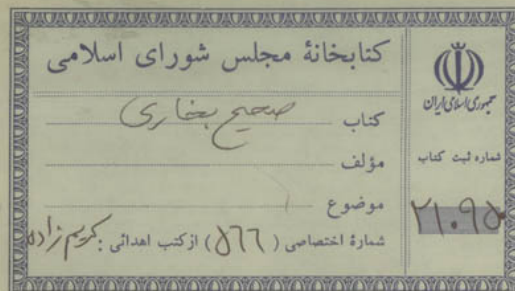 کتابخانهٔ مجلس شورای اسلامی
کتاب صحیح بخاری
مؤلف
موضوع
شمارهٔ اختصاصی ( ۵۶۶ ) از کتب اهدائی : کریم زاده
جمهوری اسلامی ایران
شماره ثبت کتاب
۲۱۰۹۵۰